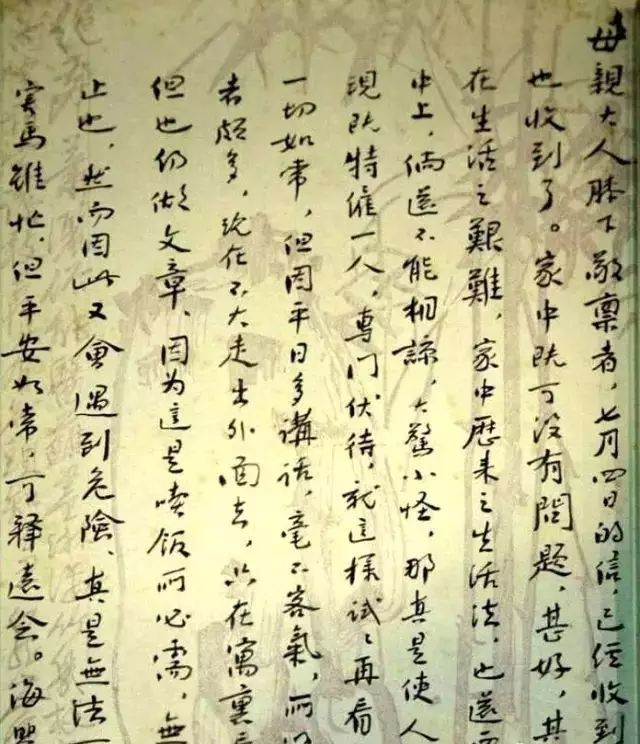 母親大人膝下敬禀者，七月四日的信，已經收到
也收到了。家中既可没有問題，甚好，其
在生活之艱難，家中歷来之生活法，也還
中上，倘還不能相諒，大驚小怪，那真是使人
現既特雇一人，專門伏待，就這樣試〻再看
一切如常，但因平日多講話，毫不客氣，而
者頗多，現在不大走出外面去，只在寓裏
但也仍做文章，因为這是喫飯所必需，無
止也，然而因此又會遇到危險，真是無法
寓焉雖忙，但平安如常，可释遠念。海